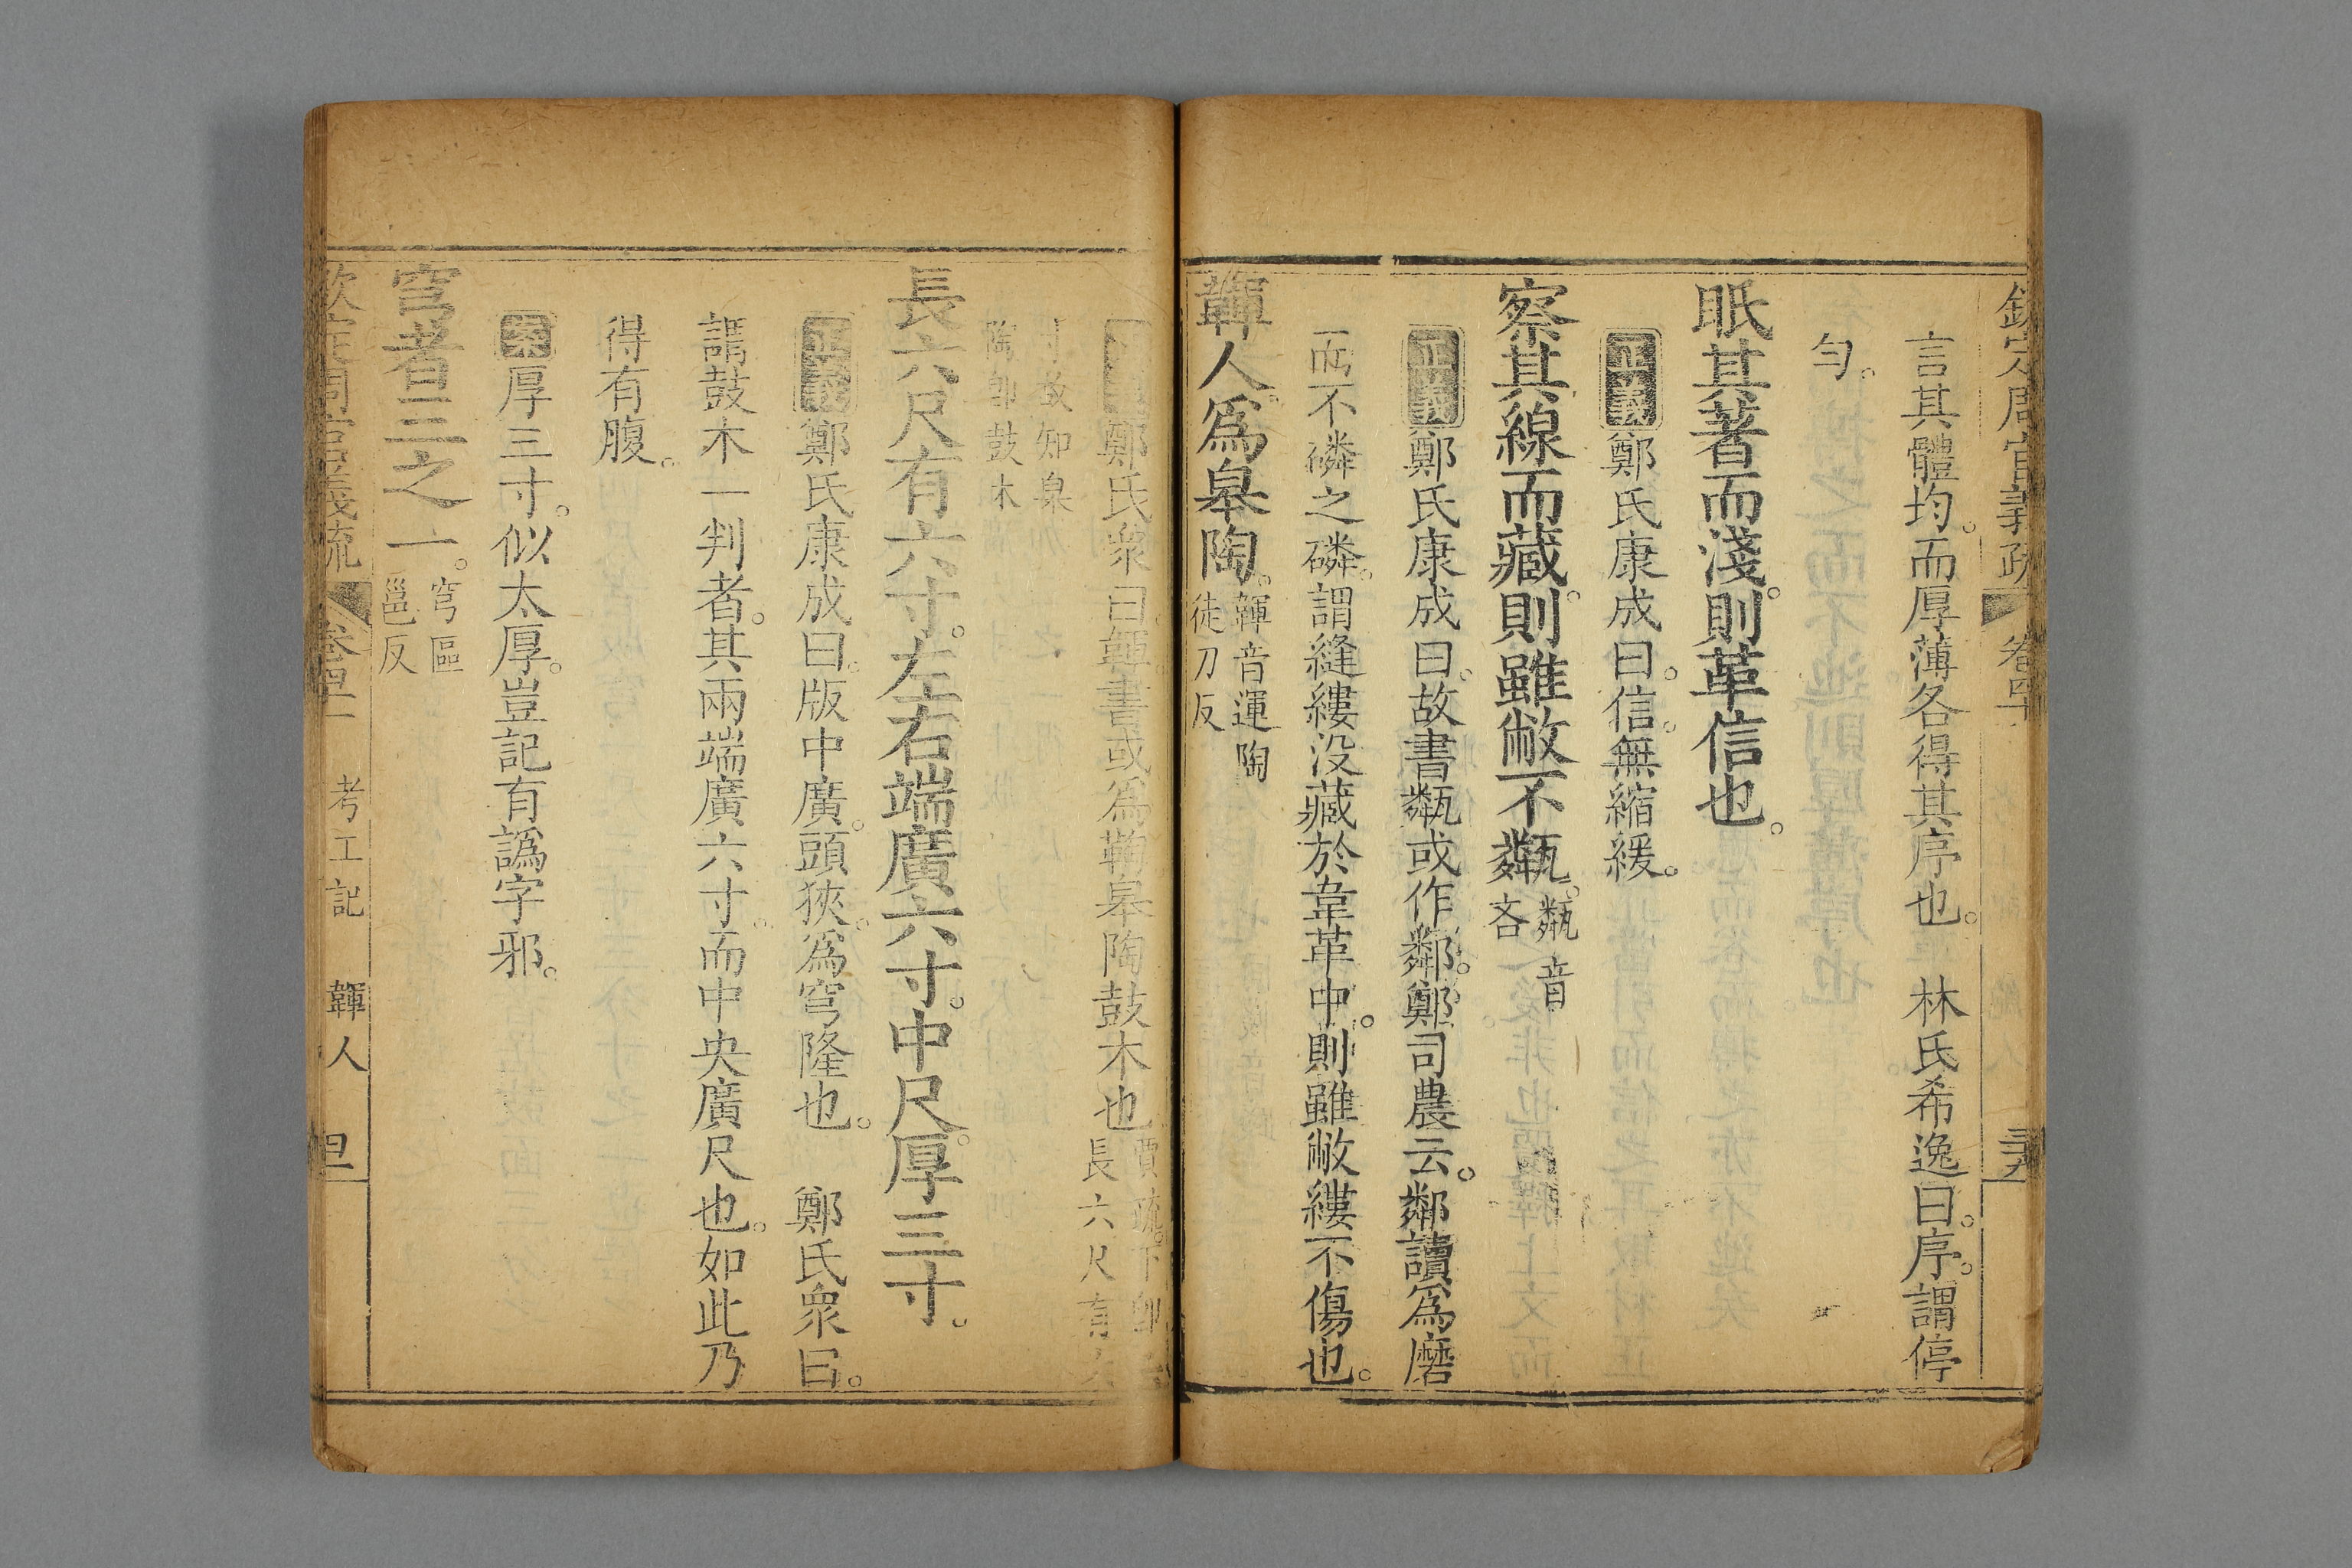 欽定周官義疏 卷四十
言其體均。而厚薄各得其序也。 林氏希逸曰。序。謂停
勻。
眡其著而淺。則革信也。
正義 鄭氏康成曰。信。無縮緩。
察其線而藏。則雖敝不甐。甐音吝
正義 鄭氏康成曰。故書甐或作鄰。鄭司農云。鄰讀為磨
而不磷之磷。謂縫縷没藏於韋革中。則雖敝縷不傷也。
韗人爲皋陶。韗音運陶
徒刀反
鄭氏衆曰。韗書或為鞠皋陶鼓木也 賈疏。下卽云
長六尺有六
寸故知皐
陶卽鼓木
長六尺有六寸。左右端廣六寸。中尺。厚三寸。
正義 鄭氏康成曰。版中廣。頭狹。為穹隆也。 鄭氏衆曰。
謂鼓木一判者。其兩端廣六寸。而中央廣尺也。如此乃
得有腹。
案 厚三寸。似太厚。豈記有譌字邪。
穹者三之一。穹區
邕反
欽定周官義疏 考工記 韗人